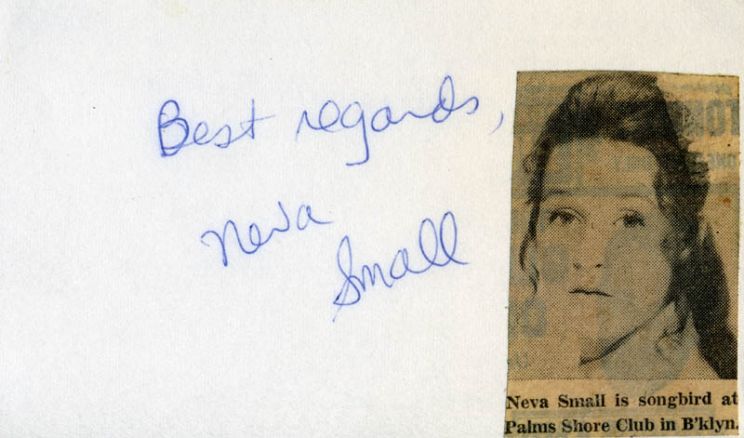 Best regards,
Neva
Small
Neva Small is songbird at
Palms Shore Club in B'klyn.